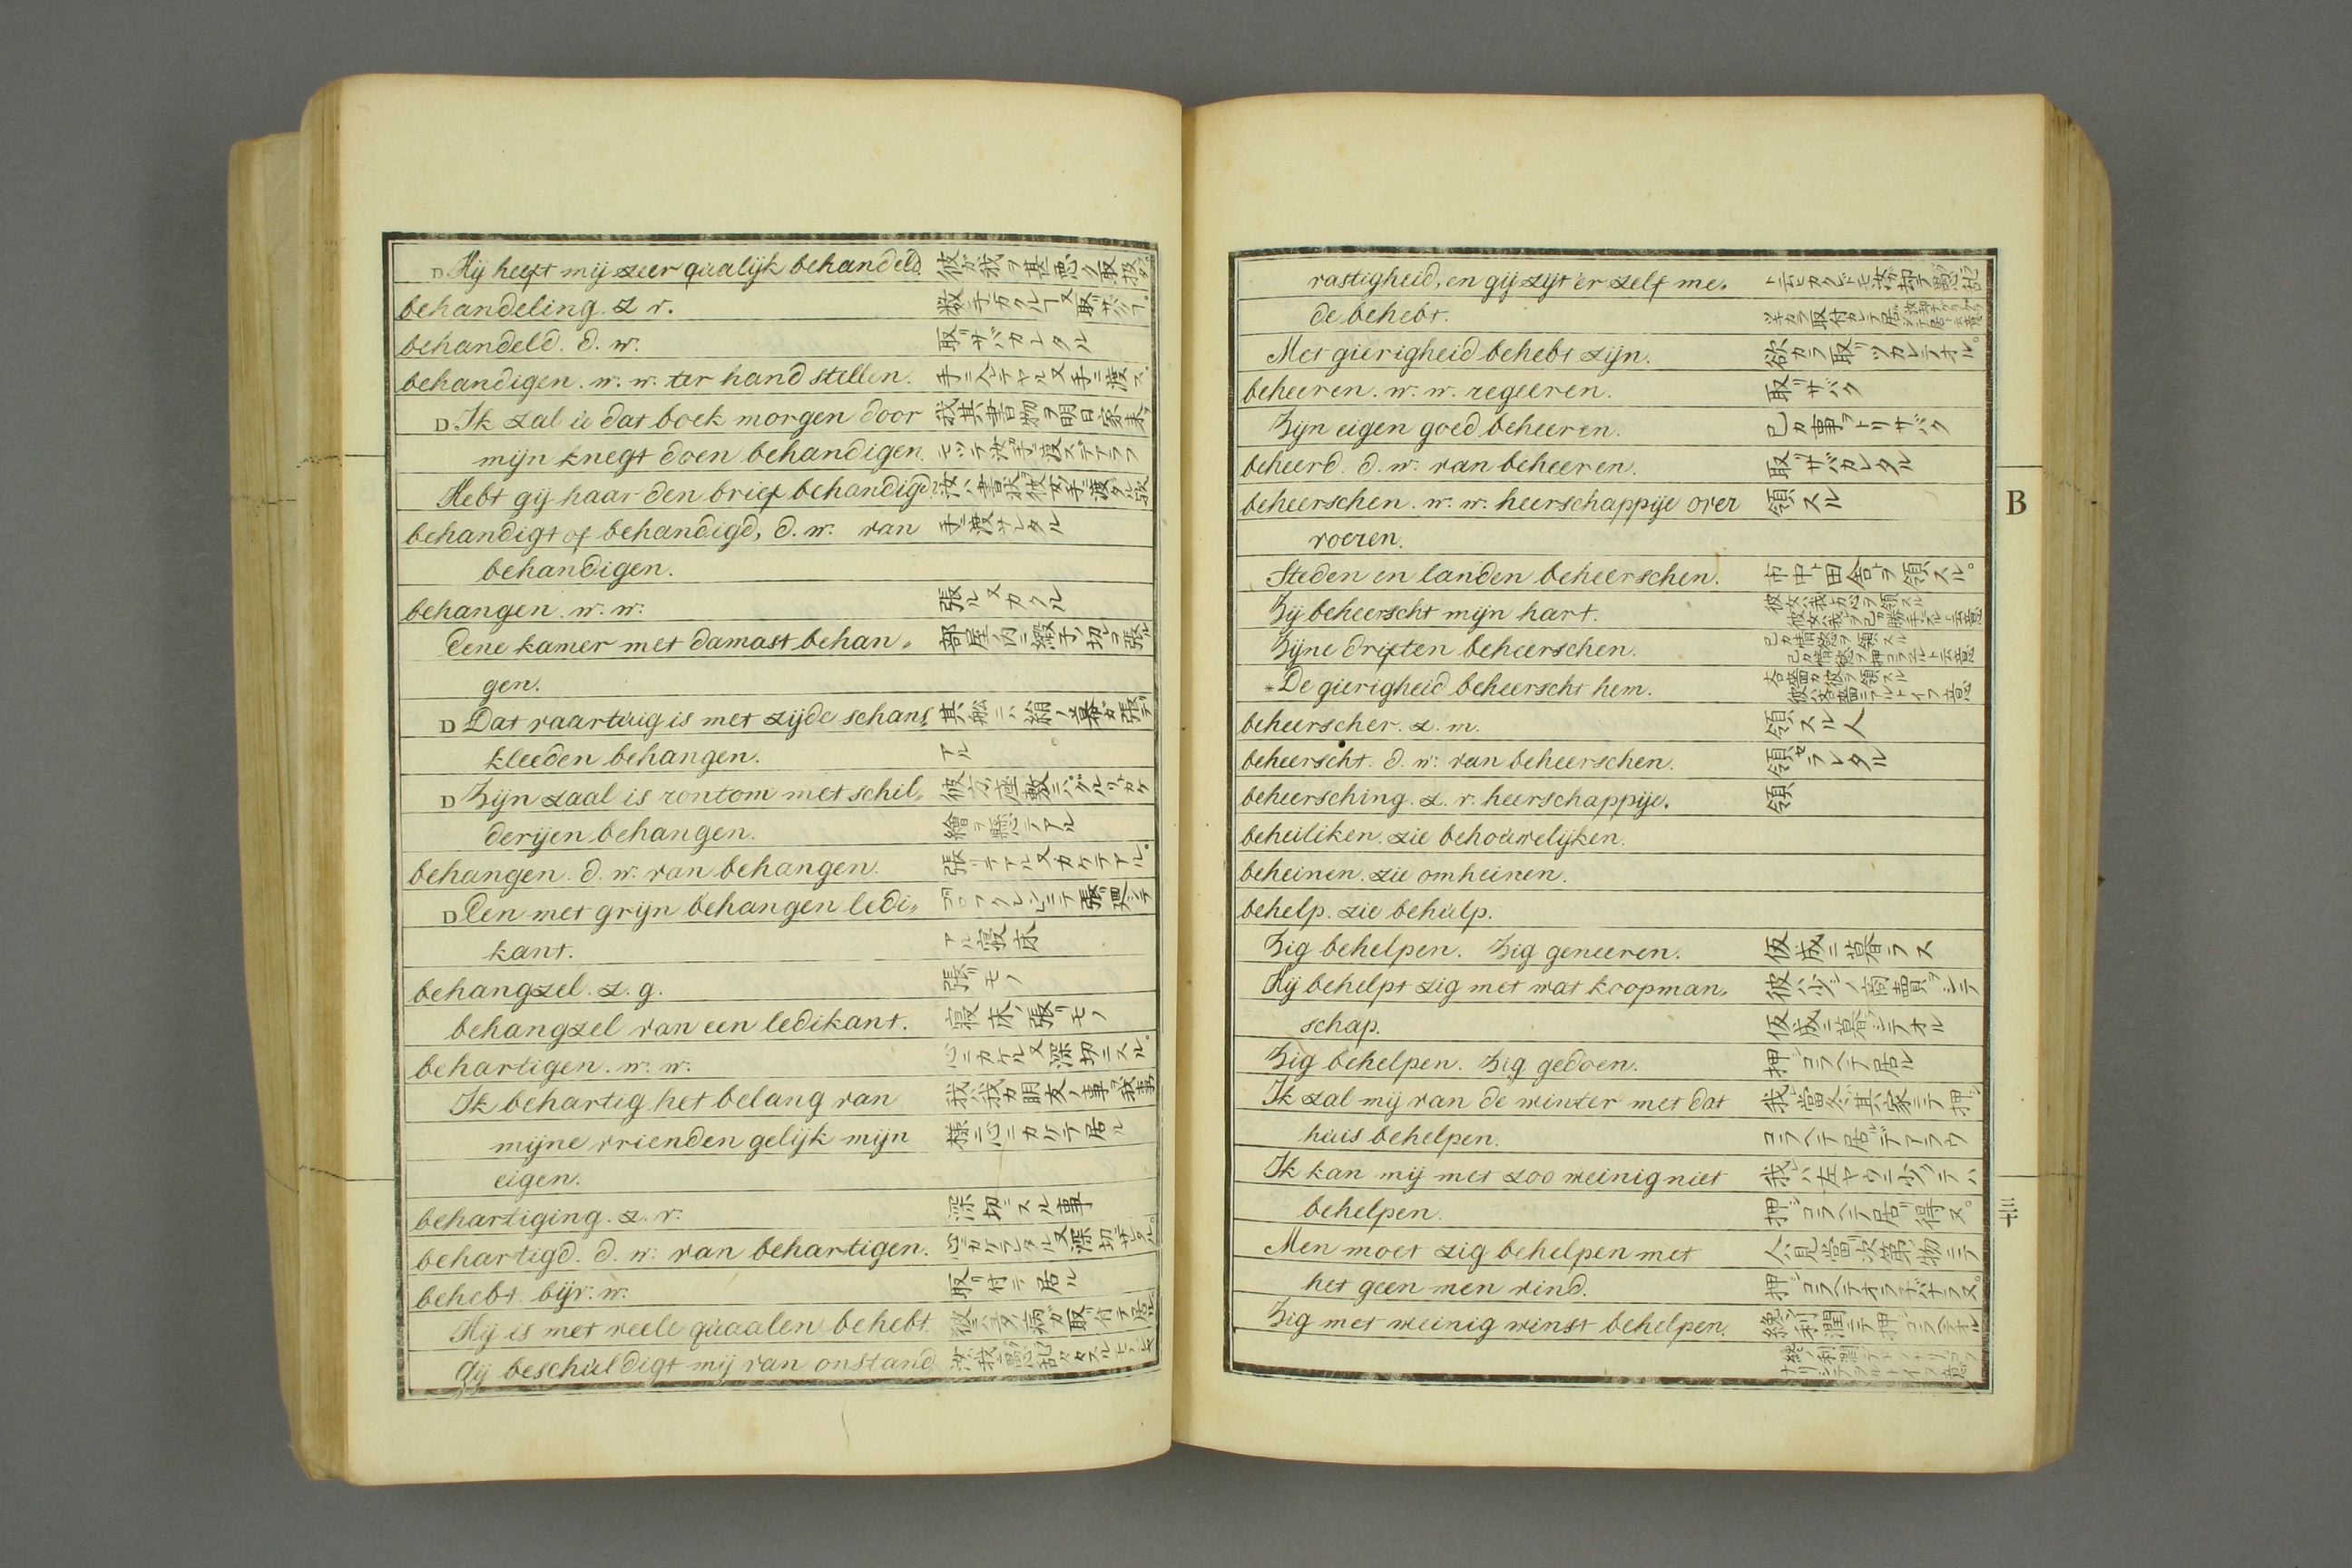 D Hij heeft mij zeer qualijk behandeld. 彼ガ我ヲ甚悪ク取扱タ
behandeling. z. v.
behandeld. d. w. 取リサバカレタル
behandigen. w. w. ter hand stellen. 手ニ入テヤル又手ニ渡ス
D Ik zal u dat boek morgen door 我其書物ヲ明日家来ヲ
mijn knegt doen behandigen.
Hebt gij haar den brief behandigd?
behandigt of behandigd, d. w. van 手ニ渡サレタル
behandigen.
behangen. w. w. 張ル又カクル
Eene kamer met damast behan, 部屋ノ内ニ緞子ノ切レヲ張ル
gen.
D Dat vaartuig is met zijde schans, 其舩ニハ絹ノ幕ガ張テ
kleeden behangen. アル
D Zijn zaal is rontom met schil,
derijen behangen. 繪ヲ懸テアル
behangen. d. w. van behangen. 張リテアル又カケテアル。
D Een met grijn behangen ledi,
kant. アル寝床
behangzel. z. g. 張リモノ
behangzel van een ledikant. 寝床ノ張リモノ
behartigen. w. w. 心ニカケル又深切ニスル。
Ik behartig het belang van 我ハ我カ朋友ノ事ヲ我事
mijne vrienden gelijk mijn 様ニ心ニカケテ居ル
eigen.
behartiging. z. v. 深切ニスル事
behartigd. d. w. van behartigen.
behebt. bijv. w. 取リ付テ居ル
Hij is met veele quaalen behebt.
Gij beschuldigt mij van onstand,
rastigheid, en gij zijt er zelf me,
de behebt.
Met gierigheid behebt zijn. 欲カラ取リツカレテオル。
beheeren. w. w. regeeren. 取リサバク
Zijn eigen goed beheeren. 己カ事ヲトリサバク
beheerd. d. w. van beheeren. 取リサバカレタル
beheerschen. w. w. heerschappije over 領スル
voeren.
Steden en landen beheerschen. 市中ト田舎トヲ領スル。
Zij beheerscht mijn hart.
Zijne driften beheerschen. 己カ情慾ヲ領スル
* De gierigheid beheerscht hem.
beheerscher. z. m. 領スル人
beheerscht. d. w. van beheerschen. 領セラレタル
beheersching. z. v. heerschappije. 領
beheiliken. zie behouwelijken.
beheinen. zie omheinen.
behelp. zie behulp.
Zig behelpen. Zig geneeren. 仮成ニ暮ラス
Hij behelpt zig met wat koopman, 彼ハ少シノ商賣ヲシテ
schap. 仮成ニ暮シテオル
Zig behelpen. Zig gedoen. 押シコラヘテ居ル
Ik zal mij van de winter met dat 我ハ當冬ハ其家ニテ押シ
huis behelpen. コラヘテ居ルデアラウ
Ik kan mij met zoo weinig niet
behelpen. 押シコラヘテ居リ得ヌ。
Men moet zig behelpen met
het geen men vind. 押シコラヘテオラ子バナラヌ。
Zig met weinig winst behelpen.
B